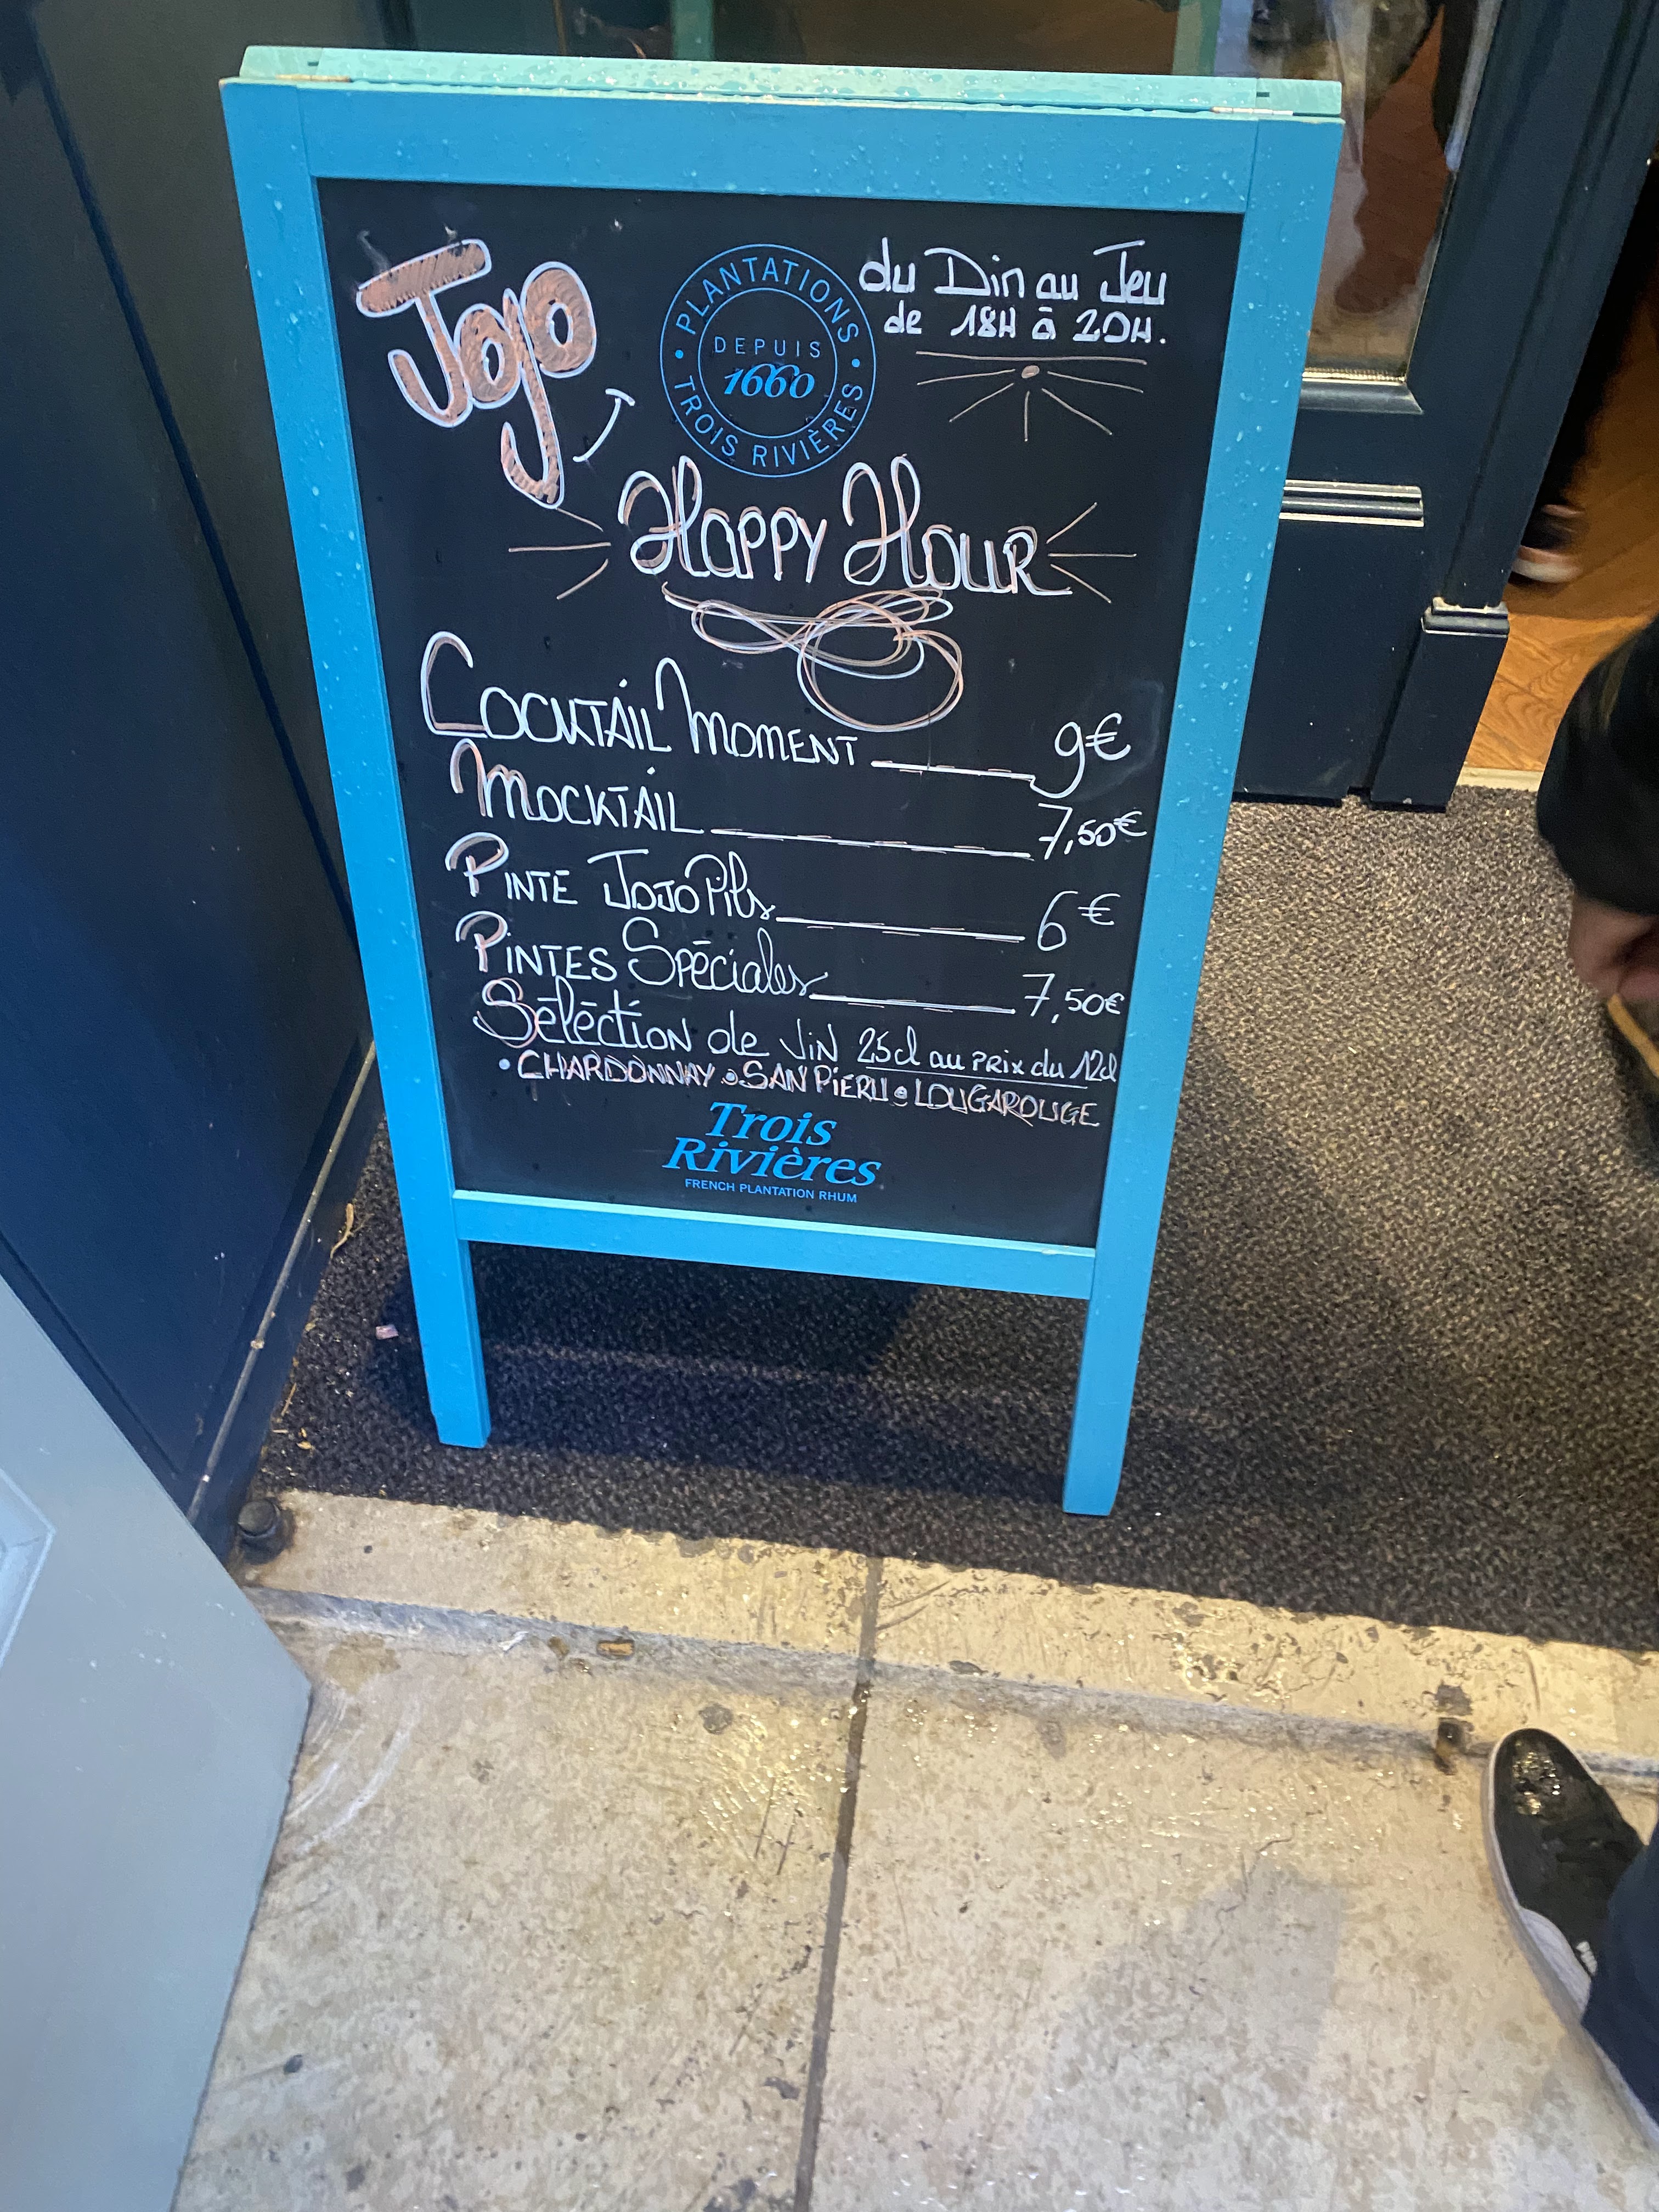 Jojo
PLANTATIONS
DEPUIS
1660
TROIS RIVIÈRES
du Dim au Jeu
de 18H à 20H.
HAPPY HOUR
COCKTAIL MOMENT 9€
MOCKTAIL 7,50€
PINTE JOJO Pils 6€
PINTES Spéciales 7,50€
Séléction de Vin 25cl au PRIX du 12cl
• CHARDONNAY • SAN PIERU • LOUGAROUGE
Trois
Rivières
FRENCH PLANTATION RHUM